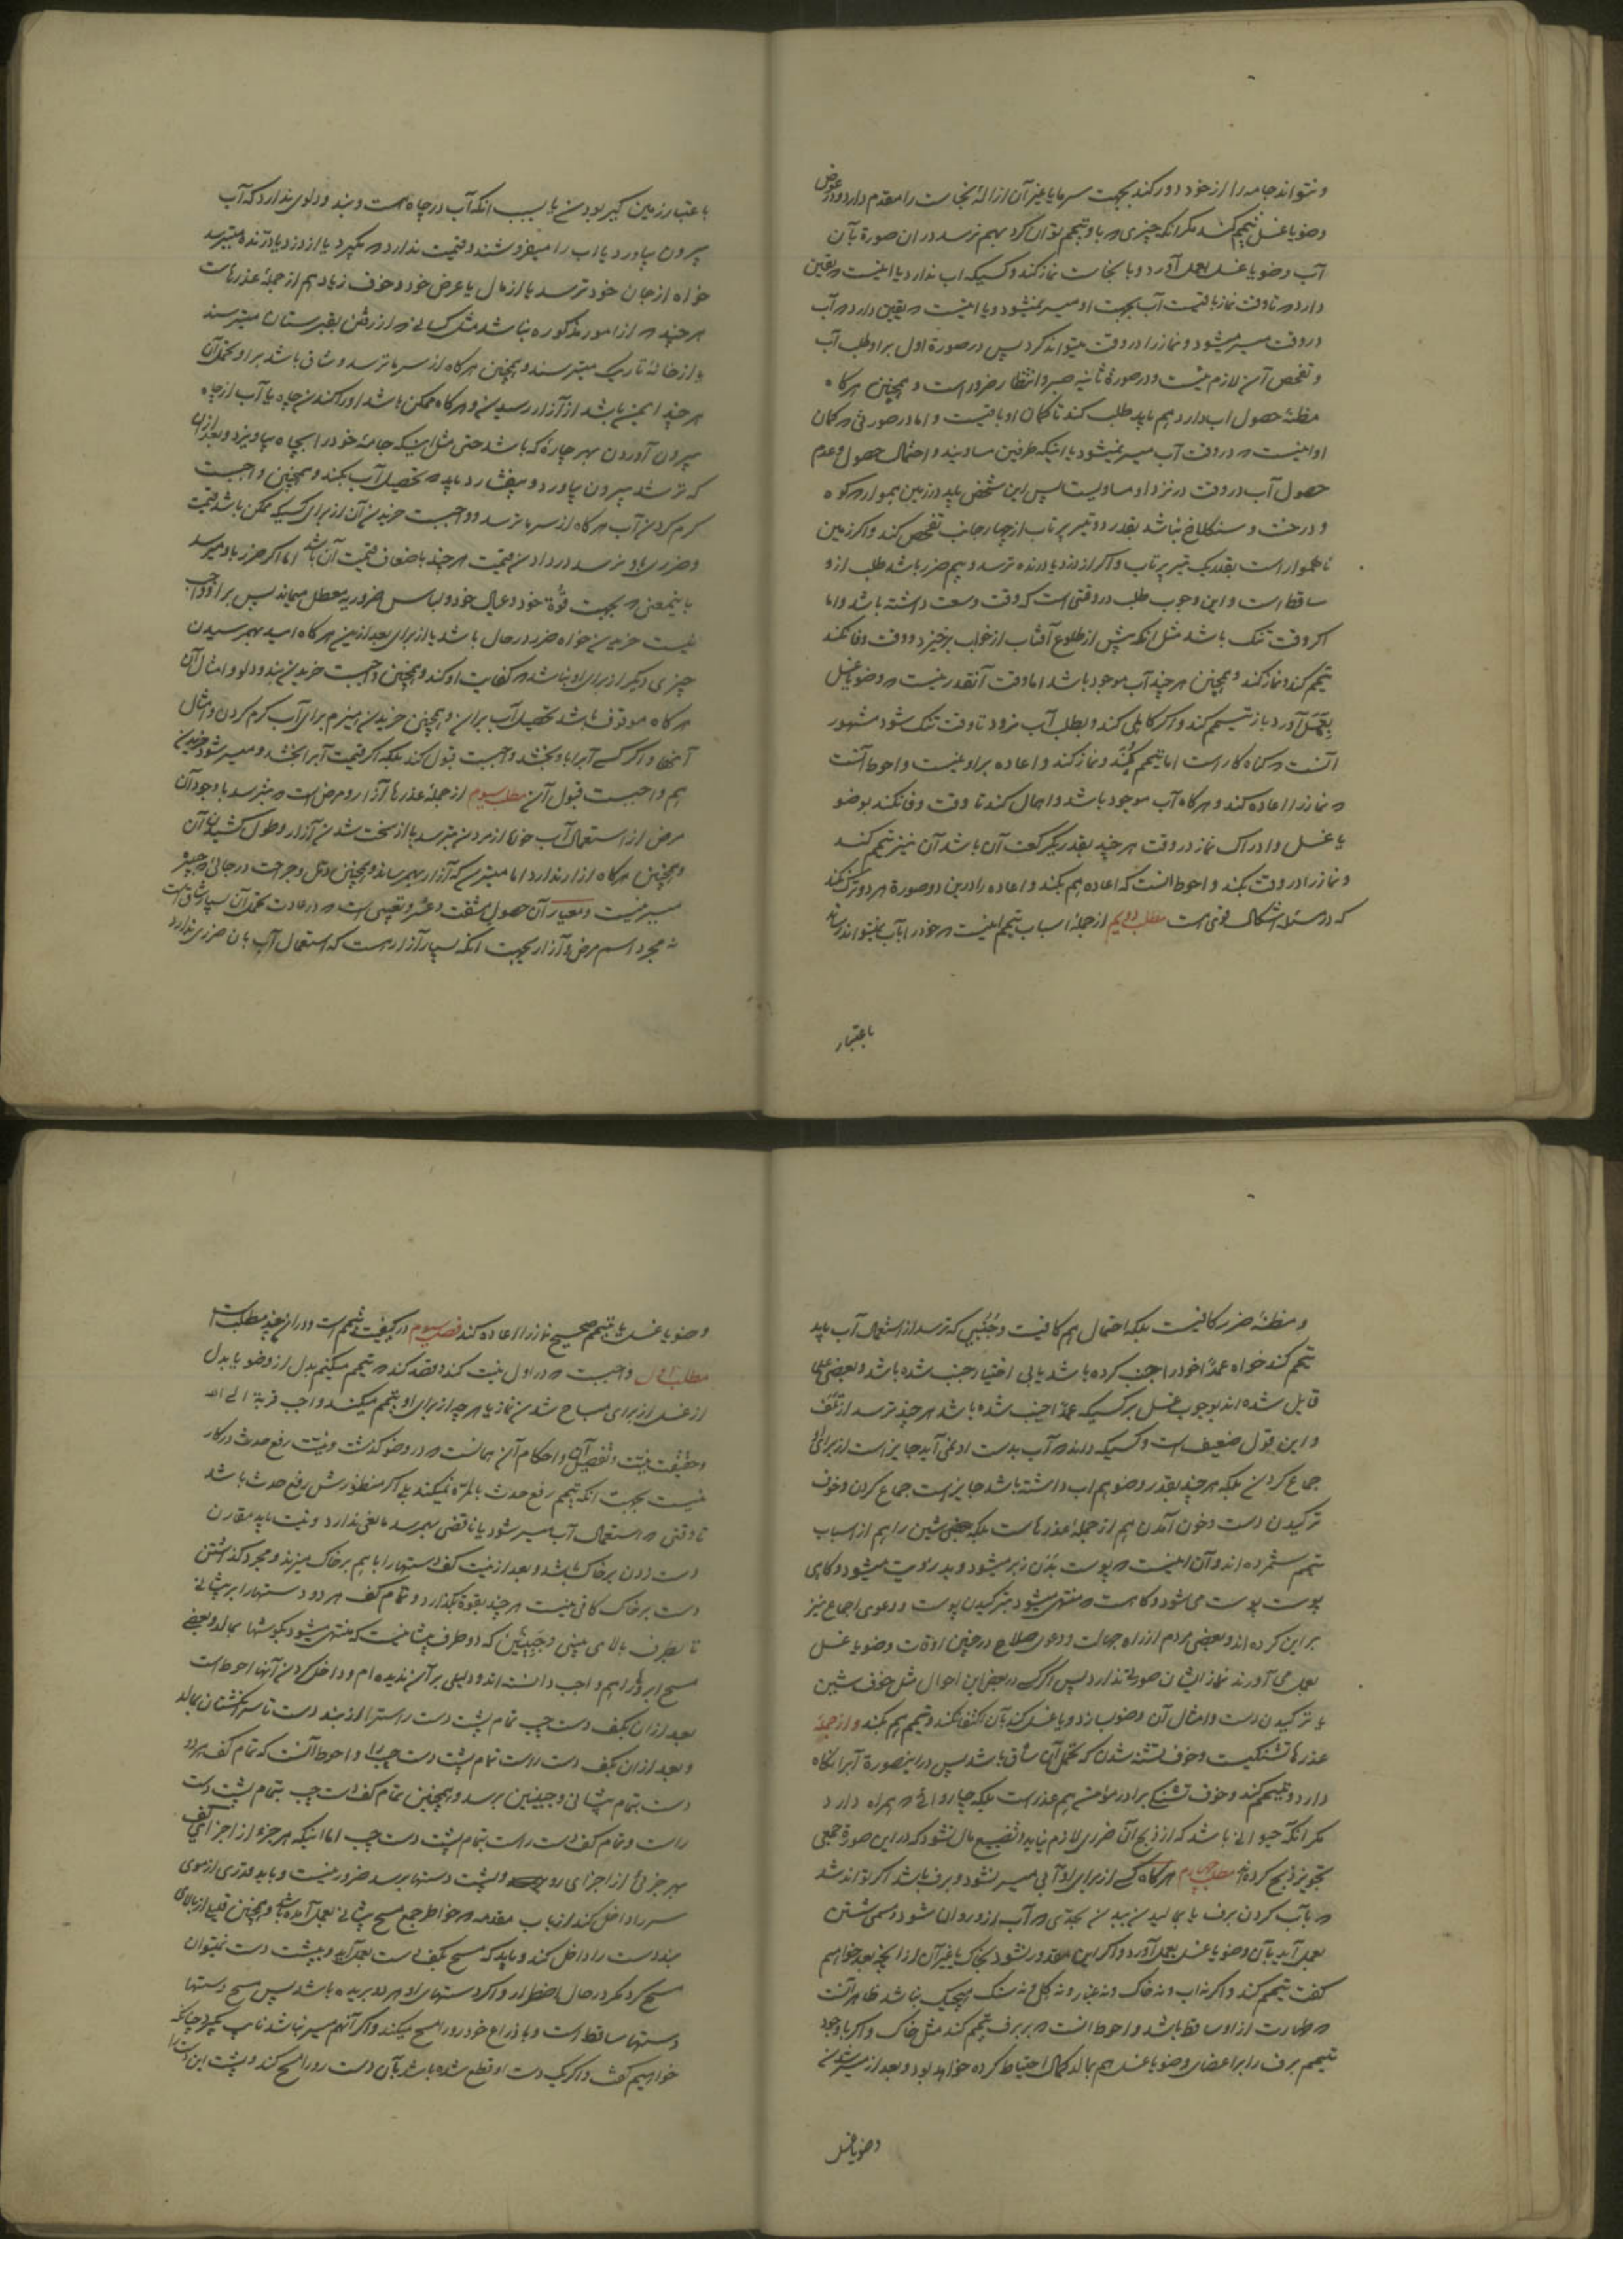 و نتواند جامه را از خود دور کند بجهت سرما یا غیر آن ازالهٔ نجاست را مقدم دارد و در عوض
وضو یا غسل تیمم کند مگر آنکه چیزی که باو تیمم توان کرد بهم نرسد در ان صورة بآن
آب وضو یا غسل بعمل آورد و با نجاست نماز کند و کسیکه اب ندارد یا اینست که یقین
دارد که تا وقت نماز باقیست آب بجهت او میسر نمیشود و یا اینست که یقین دارد که آب
در وقت میسر میشود و نماز را در وقت میتواند کرد پس در صورة اول بر او طلب آب
و تفحص آن لازم نیست و در صورة ثانیه صبر و انتظار ضرور است و همچنین هرگاه
مظنهٔ حصول اب دارد هم باید طلب کند تا گمان او باقیست و اما در صورتی که گمان
او اینست که در وقت آب میسر نمیشود یا اینکه طرفین مساویند و احتمال حصول و عدم
حصول آب در وقت در نزد او مساویست پس این شخص باید در زمین هموار که کوه
و درخت و سنگلاخ نباشد بقدر دو تیر پرتاب از چهار جانب تفحص کند و اگر زمین
ناهموار است بقدر یک تیر پرتاب و اگر از دزد یا درنده ترسد و بیم ضرر باشد طلب از او
ساقط است و این وجوب طلب در وقتی است که وقت وسعت داشته باشد و اما
اگر وقت تنگ باشد مثل آنکه پیش از طلوع آفتاب از خواب برخیزد و وقت وفا نکند
تیمم کند و نماز کند و همچنین هر چند آب موجود باشد اما وقت آنقدر نیست که وضو یا غسل
بعمل آورد باز تیمم کند و اگر کاهلی کند و بطلب آب نرود تا وقت تنگ شود مشهور
آنست که گناه کار است اما تیمم بکند و نماز کند و اعاده بر او نیست و احوط آنست
که نماز را اعاده کند و هرگاه آب موجود باشد و اهمال کند تا وقت وفا نکند بوضو
یا غسل و ادراک نماز در وقت هر چند بقدر یکرکعت آن باشد آن نیز تیمم کند
و نماز را در وقت بکند و احوط انست که اعاده هم بکند و اعاده را درین دو صورة هر دو ترک نکند
که در مسئله اشکال قوی است مطلب دویم از جملهٔ اسباب تیمم اینست که خود را بآب نمیتواند رساند
باعتبار
باعتبار زمین گیر بودن یا بسبب انکه آب در چاه هست و بند و دلوی ندارد که آب
بیرون بیاورد یا اب را میفروشند و قیمت ندارد که بگیرد یا از دزد یا درنده میترسد
خواه از جان خود ترسد یا از مال یا عرض خود و خوف زیاد هم از جملهٔ عذرهاست
هر چند که از امور مذکوره نباشد مثل کسانی که از رفتن بقبرستان میترسند
یا از خانهٔ تاریک میترسند و همچنین هرگاه از سرما ترسد و شاق باشد بر او تحمل آن
هر چند ایمن باشد از آزار رسیدن و هرگاه ممکن باشد او را کندن چاه یا آب از چاه
بیرون آوردن بهر چارهٔ که باشد حتی مثل اینکه جامهٔ خود را بچاه بیاویزد و بعد از ان
که تر شد بیرون بیاورد و بیفشارد باید که تحصیل آب بکند و همچنین واجبست
گرم کردن آب هرگاه از سرما ترسد و واجبست خریدن آن از برای کسیکه ممکن باشد قیمت
و ضرری باو نرسد در دادن قیمت هر چند باضعاف قیمت آن باشد اما اگر ضرر باو میرسد
باینمعنی که بجهت قوت خود و عیال خود و لباس ضروریه معطل میماند پس بر او واجب
نیست خریدن خواه ضرر در حال باشد یا از برای بعد ازین هرگاه امید بهمرسیدن
چیزی دیگر از برای او نباشد که کفایت او کند و همچنین واجبست خریدن بند و دلو و امثال آن
هرگاه موقوف باشد تحصیل آب بران و همچنین خریدن هیزم برای آب گرم کردن و امثال
آنها و اگر کسی آبرا باو بخشد واجبست قبول کند بلکه اگر قیمت آبرا بخشد و میسر شود خریدن
هم واجبست قبول آن مطلب سیوم از جملهٔ عذرها آزار و مرض است که بترسد با وجود آن
مرض از استعمال آب خواه از مردن بترسد یا از سخت شدن آزار و طول کشیدن آن
و همچنین هرگاه آزار ندارد اما میترسد که آزار بهمرساند و همچنین دمل و جراحت در جائی که جبیره
میسر نیست و معیار آن حصول مشقت و عسر و تعبی است که در عادت تحمل آن بسیار شاق است
نه مجرد اسم مرض و آزار بجهت آنکه بسیار آزار هست که استعمال آب بان ضرری ندارد
و مظنهٔ ضرر کافیست بلکه احتمال هم کافیست و جنبی که ترسد از استعمال آب باید
تیمم کند خواه عمداً خود را جنب کرده باشد یا بی اختیار جنب شده باشد و بعضی علما
قایل شده اند بوجوب غسل بر کسیکه عمداً جنب شده باشد هر چند ترسد از تلف
و این قول ضعیف است و کسیکه داند که آب بدست او نمی آید جایز است از برای او
جماع کردن بلکه هر چند بقدر وضو هم اب داشته باشد جایز است جماع کردن و خوف
ترکیدن دست و خون آمدن هم از جملهٔ عذرهاست بلکه بعضی شین را هم از اسباب
تیمم شمرده اند و آن اینست که پوست بدن زبر میشود و بد رویت میشود و گاهی
پوست پوست می شود و گاهست که منتهی میشود بترکیدن پوست و دعوی اجماع نیز
بر این کرده اند و بعضی مردم از راه جهالت و دعوی صلاح در چنین اوقات وضو یا غسل
بعمل می آورند نماز ایشان صورتی ندارد پس اگر کسی در بعض این احوال مثل خوف شین
یا ترکیدن دست و امثال آن وضو بسازد و یا غسل کند بآن اکتفا نکند و تیمم هم بکند و از جملهٔ
عذرها تشنگیست و خوف تشنه شدن که تحمل آن شاق باشد پس در اینصورة آبرا نگاه
دارد و تیمم کند و خوف تشنگی برادر مؤمن هم عذر است بلکه چاروائی که همراه دارد
مگر آنکه حیوانی باشد که از ذبح آن ضرری لازم نیاید و تضییع مال نشود که در این صورة جمعی
تجویز ذبح کرده اند مطلب چهارم هرگاه کسی از برای او آبی میسر نشود و برف باشد اگر تواند شد
که بآب کردن برف یا بمالیدن ببدن بحدی که آب از او روان شود و مسمی شستن
بعمل آید بآن وضو یا غسل بعمل آورد و اگر این مقدور نشود بخاک یا غیر آن از آنچه بعد خواهیم
گفت تیمم کند و اگر نه اب و نه خاک و نه غبار و نه گل و نه سنگ هیچیک نباشد ظاهر آنست
که طهارت از او ساقط باشد و احوط انست که بر برف تیمم کند مثل خاک و اگر با وجود
تیمم برف را بر اعضای وضو یا غسل هم بمالد کمال احتیاط کرده خواهد بود و بعد از میسر شدن
وضو یا غسل
وضو یا غسل یا تیمم صحیح نماز را اعاده کند فصل سیوم در کیفیت تیمم است و در ان چند مطلب است
مطلب اول واجبست که در اول نیت کند و قصد کند که تیمم میکنم بدل از وضو یا بدل
از غسل از برای مباح شدن نماز یا هر چه از برای او تیمم میکند واجب قربة الی الله
و حقیقت نیت و تفصیل آن و احکام آن همانست که در وضو گذشت و نیت رفع حدث در کار
نیست بجهت آنکه تیمم رفع حدث بالمره نمیکند بلی اگر منظورش رفع حدث باشد
تا وقتی که استعمال آب میسر شود یا ناقضی بهمرسد مانعی ندارد و نیت باید مقارن
دست زدن بر خاک باشد و بعد از نیت کف دستها را با هم بر خاک میزند و مجرد گذاشتن
دست بر خاک کافی نیست هر چند بقوة بگذارد و تمام کف هر دو دستها را بر پیشانی
تا بطرف بالای بینی و جبینین که دو طرف پیشانیست که منتهی میشود بگوشها بمالد و بعضی
مسح ابرو را هم واجب دانسته اند و دلیلی بر آن ندیده ام و داخل کردن آنها احوط است
بعد از ان بکف دست چپ تمام پشت دست راست را از بند دست تا سر انگشتان بمالد
و بعد از ان بکف دست راست تمام پشت دست چپ را و احوط آنست که تمام کف هر دو
دست بتمام پیشانی و جبینین برسد و همچنین تمام کف دست چپ بتمام پشت دست
راست و تمام کف دست راست بتمام پشت دست چپ اما اینکه هر جزء از اجزای کف
بهر جزئی از اجزای رو و پشت دستها برسد ضرور نیست و باید قدری از موی
سر را داخل کند از باب مقدمه که خواطر جمع مسح پیشانی بعمل آمده باشد و همچنین قلیلی از بالای
بند دست را داخل کند و باید که مسح بکف دست بعمل آید و بپشت دست نمیتوان
مسح کرد مگر در حال اضطرار و اگر دستهای او هر دو بریده باشد پس مسح دستها
دستها ساقط است و با ذراع خود رو را مسح میکند و اگر آنهم میسر نباشد نایب بگیرد چنانکه
خواهیم گفت و اگر یک دست او قطع شده باشد بآن دست رو را مسح کند و پشت این دست را